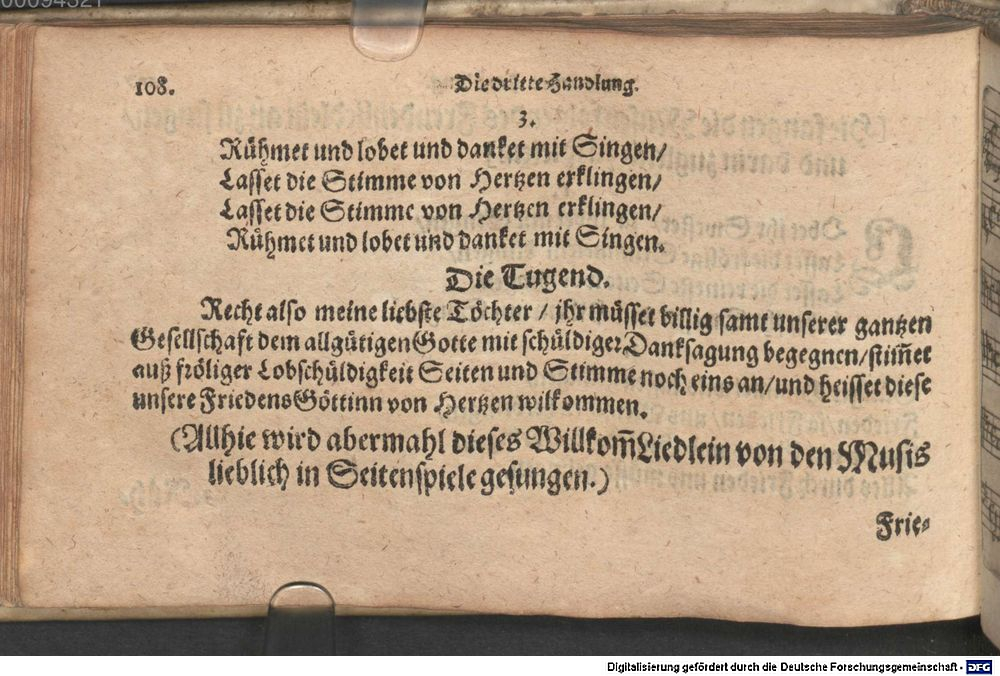 00094321
108. Die dritte Handlung.
3.
Rühmet und lobet und danket mit Singen/
Lasset die Stimme von Hertzen erklingen/
Lasset die Stimme von Hertzen erklingen/
Rühmet und lobet und danket mit Singen.
Die Tugend.
Recht also meine liebste Töchter / ihr müsset billig samt unserer gantzen
Gesellschaft dem allgütigen Gotte mit schüldiger Danksagung begegnen/stim̃et
auß fröliger Lobschüldigkeit Seiten und Stimme noch eins an/und heisset diese
unsere FriedensGöttinn von Hertzen wilkommen.
(Allhie wird abermahl dieses Willkom̃Liedlein von den Musis
lieblich in Seitenspiele gesungen.)
Frie-
Digitalisierung gefördert durch die Deutsche Forschungsgemeinschaft - DFG